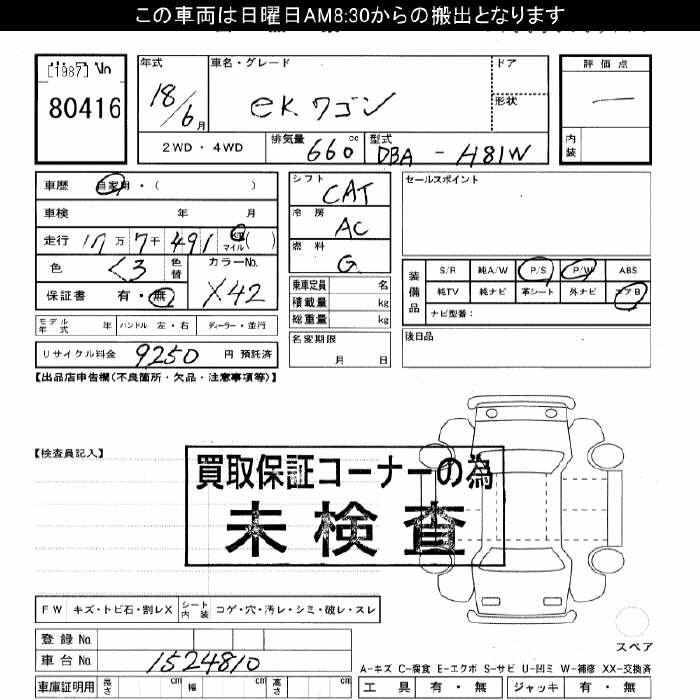 この車両は日曜日AM8:30からの搬出となります
[1987] No
80416
年式 18/6月
車名・グレード eKワゴン
ドア
形状
評価点 —
内装
2WD・4WD
排気量 660cc
型式 DBA - H81W
車歴 自家用・( )
車検 年 月
走行 17万7千491 km マイル( )
色 くろ 色替
カラーNo. X42
保証書 有・無
モデル年式 年 ハンドル 左・右 ディーラー・並行
リサイクル料金 9250 円 預託済
シフト CAT
冷房 AC
燃料 G
乗車定員 名
積載量 kg
総重量 kg
名変期限
月 日
セールスポイント
装備品
S/R 純A/W P/S P/W ABS
純TV 純ナビ 革シート 外ナビ エアB
ナビ型番:
後日品
【出品店申告欄(不良箇所・欠品・注意事項等)】
【検査員記入】
買取保証コーナーの為
未検査
FW キズ・トビ石・割レX シート内装 コゲ・穴・汚レ・シミ・破レ・スレ
登録No.
車台No. 1524810
車庫証明用 長さ cm 幅 cm 高さ cm
スペア
A-キズ C-腐食 E-エクボ S-サビ U-凹ミ W-補修 XX-交換済
工具 有・無 ジャッキ 有・無